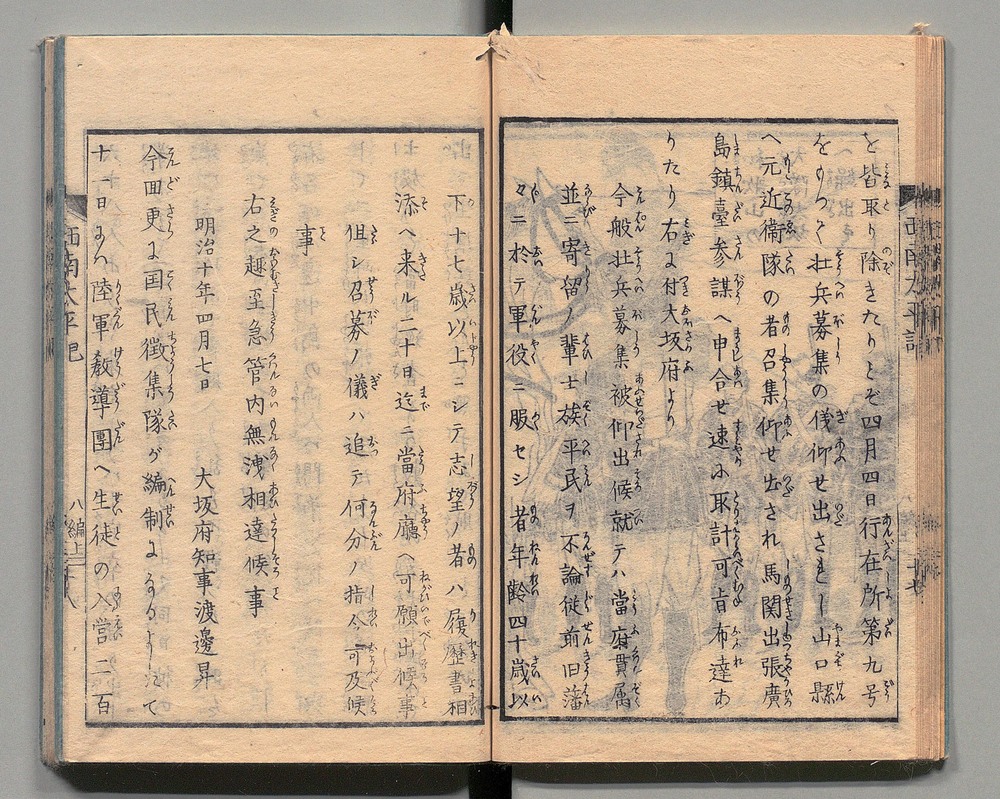 を皆取り除きたりとぞ四月四日行在所第九号
をもつて壮兵募集の儀仰せ出されし山口縣
へ元近衛隊の者召集仰せ出され馬関出張廣
島鎮臺参謀へ申合せ速に取計可旨布達あ
りたり右に付大坂府より
今般壮兵募集被仰出候就テハ當府貫属
並ニ寄留ノ輩士族平民ヲ不論従前旧藩
々ニ於テ軍役ニ服セシ者年齢四十歳以
下十七歳以上ニシテ志望ノ者ハ履歴書相
添へ来ル二十日迄ニ當府廳へ可願出候事
但シ召募ノ儀ハ追テ何分ノ指令可及候
事
右之趣至急管内無洩相達候事
明治十年四月七日
大坂府知事渡邊昇
今回更に国民徴集隊が編制になりよしにて
十一日より陸軍教導團へ生徒の入営二百
西南太平記
八編上